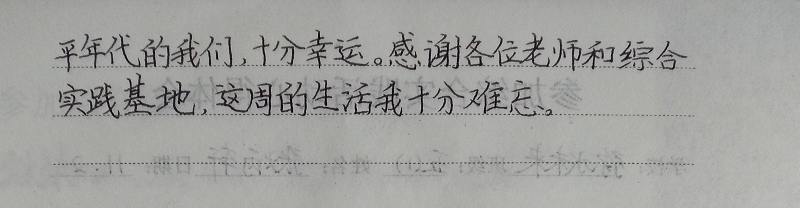 平年代的我们,十分幸运。感谢各位老师和综合
实践基地,这周的生活我十分难忘。